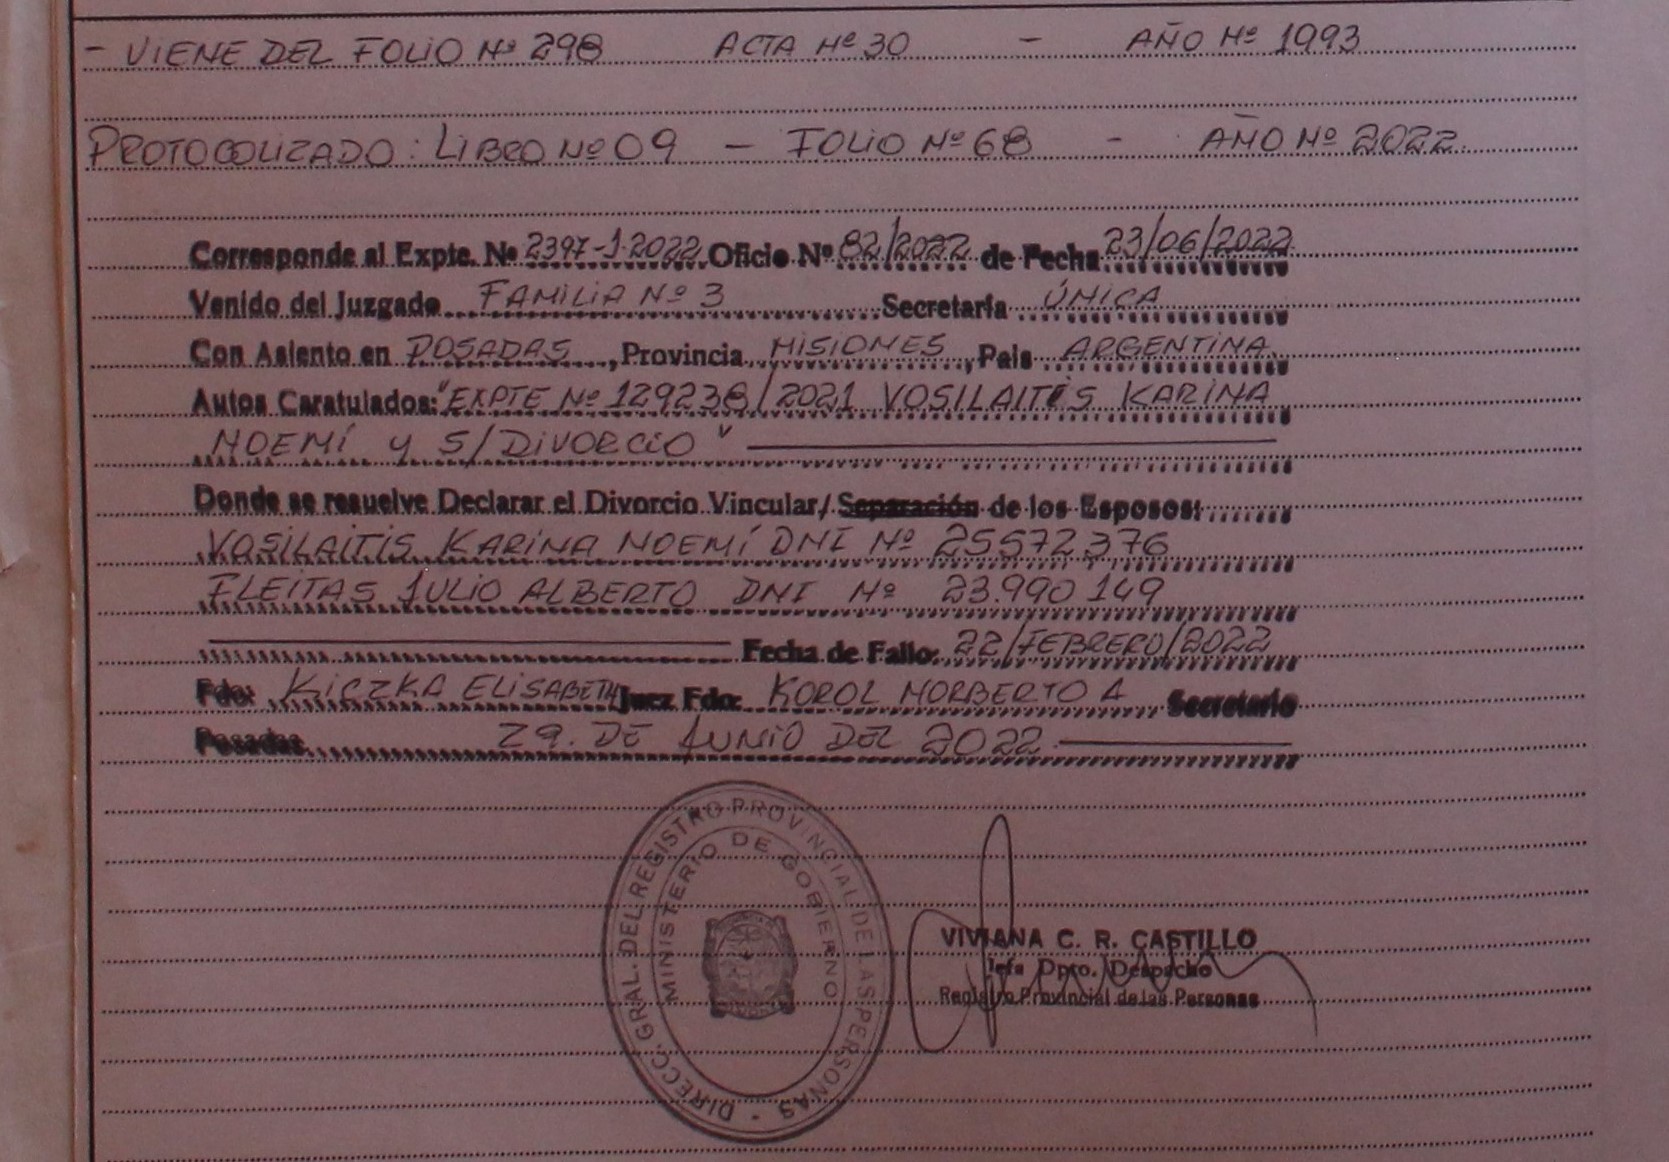 - VIENE DEL FOLIO Nº 298 ACTA Nº 30 - AÑO Nº 1993
PROTOCOLIZADO: LIBRO Nº 09 - FOLIO Nº 68 - AÑO Nº 2022.
Corresponde al Expte. Nº 2397-J-2022 Oficio Nº 82/2022 de Fecha 23/06/2022
Venido del Juzgado FAMILIA Nº 3 Secretaría ÚNICA
Con Asiento en POSADAS, Provincia MISIONES, País ARGENTINA
Autos Caratulados: "EXPTE Nº 129238/2021 VOSILAITIS KARINA
NOEMÍ y S/DIVORCIO"
Donde se resuelve Declarar el Divorcio Vincular/ Separación de los Esposos:
VOSILAITIS KARINA NOEMÍ DNI Nº 25572376
FLEITAS JULIO ALBERTO DNI Nº 23.990 149
Fecha de Fallo: 22/FEBRERO/2022
Fdo: KICZKA ELISABETH Juez Fdo: KOROL NORBERTO A Secretario
Posadas, 29. DE JUNIO DEL 2022.
DIRECC. GRAL. DEL REGISTRO PROVINCIAL DE LAS PERSONAS -
MINISTERIO DE GOBIERNO
VIVIANA C. R. CASTILLO
Jefa Dpto. Despacho
Registro Provincial de las Personas